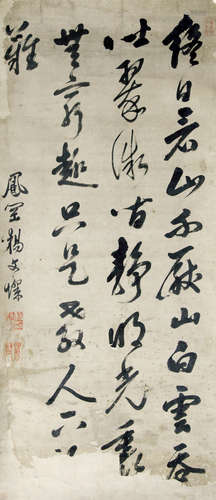 儘日看山不厭山白雲吞
吐翠微間靜明光裏
無窮趣只是教人下
難
鳳罡楊文燦